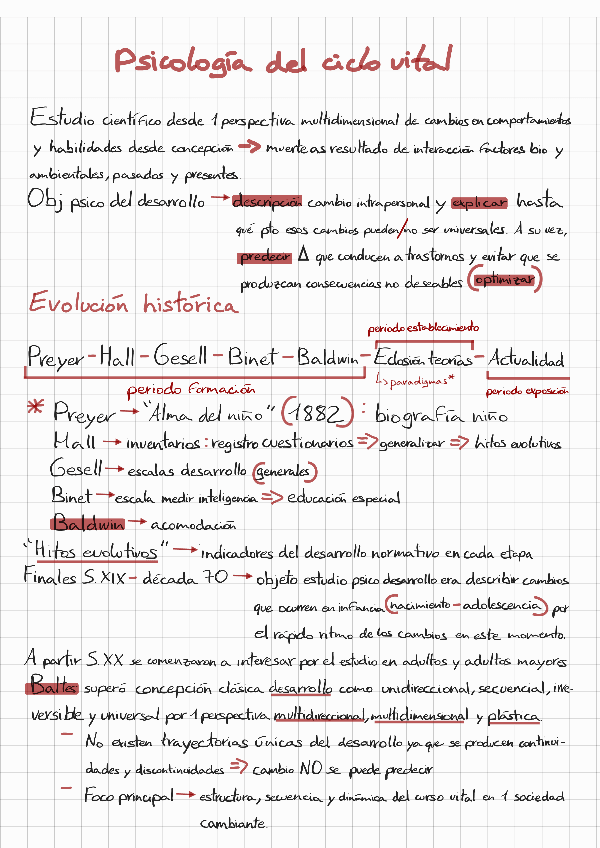 Psicología del ciclo vital
Estudio científico desde 1 perspectiva multidimensional de cambios en comportamientos
y habilidades desde concepción ⇒ muerte as resultado de interacción factores bio y
ambientales, pasados y presentes.
Obj psico del desarrollo → descripción cambio intrapersonal y explicar hasta
qué pto esos cambios pueden/no ser universales. A su vez,
predecir Δ que conducen a trastornos y evitar que se
produzcan consecuencias no deseables (optimizar)
Evolución histórica
periodo establecimiento
Preyer - Hall - Gesell - Binet - Baldwin - Eclosión teorías - Actualidad
↳ paradigmas*
periodo formación
periodo expansión
* Preyer → "Alma del niño" (1882) : biografía niño
Hall → inventarios : registro cuestionarios ⇒ generalizar ⇒ hitos evolutivos
Gesell → escalas desarrollo (generales)
Binet → escala medir inteligencia ⇒ educación especial
Baldwin → acomodación
"Hitos evolutivos" → indicadores del desarrollo normativo en cada etapa
Finales S. XIX - década 70 → objeto estudio psico desarrollo era describir cambios
que ocurren en infancia (nacimiento - adolescencia) por
el rápido ritmo de los cambios en este momento.
A partir S. XX se comenzaron a interesar por el estudio en adultos y adultos mayores
Baltes superó concepción clásica desarrollo como unidireccional, secuencial, irre-
versible y universal por 1 perspectiva multidireccional, multidimensional y plástica.
- No existen trayectorias únicas del desarrollo ya que se producen continui-
dades y discontinuidades ⇒ cambio NO se puede predecir
- Foco principal → estructura, secuencia y dinámica del curso vital en 1 sociedad
cambiante.